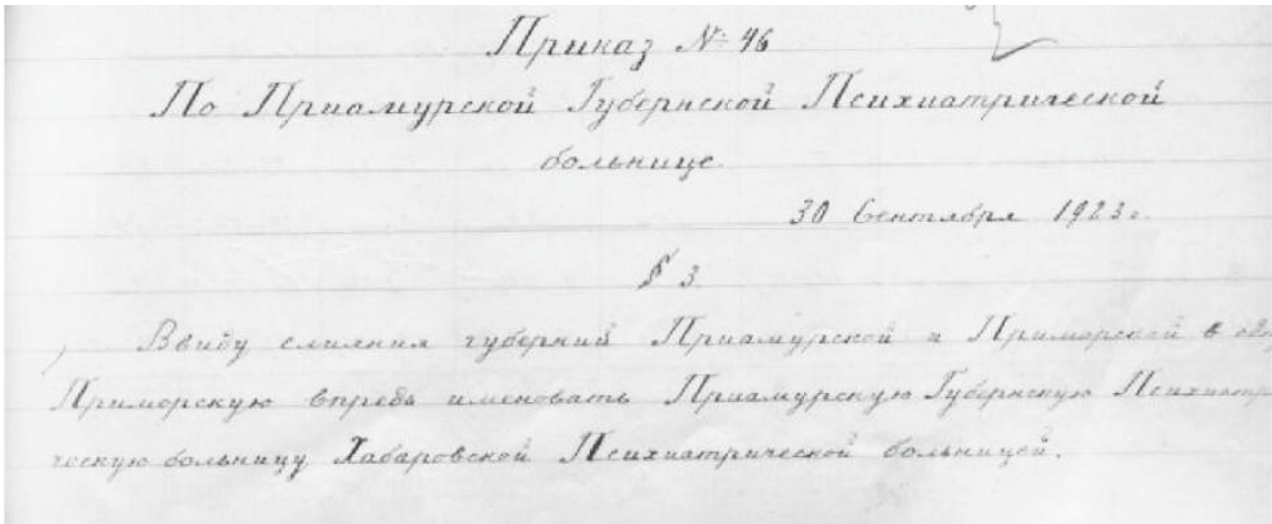 Приказ № 46
По Приамурской Губернской Психиатрической
больнице.
30 Сентября 1923 г.
§ 3.
Ввиду слияния губерний Приамурской и Приморской в
Приморскую впредь именовать Приамурскую Губернскую Психиатри
ческую больницу Хабаровской Психиатрической больницей.